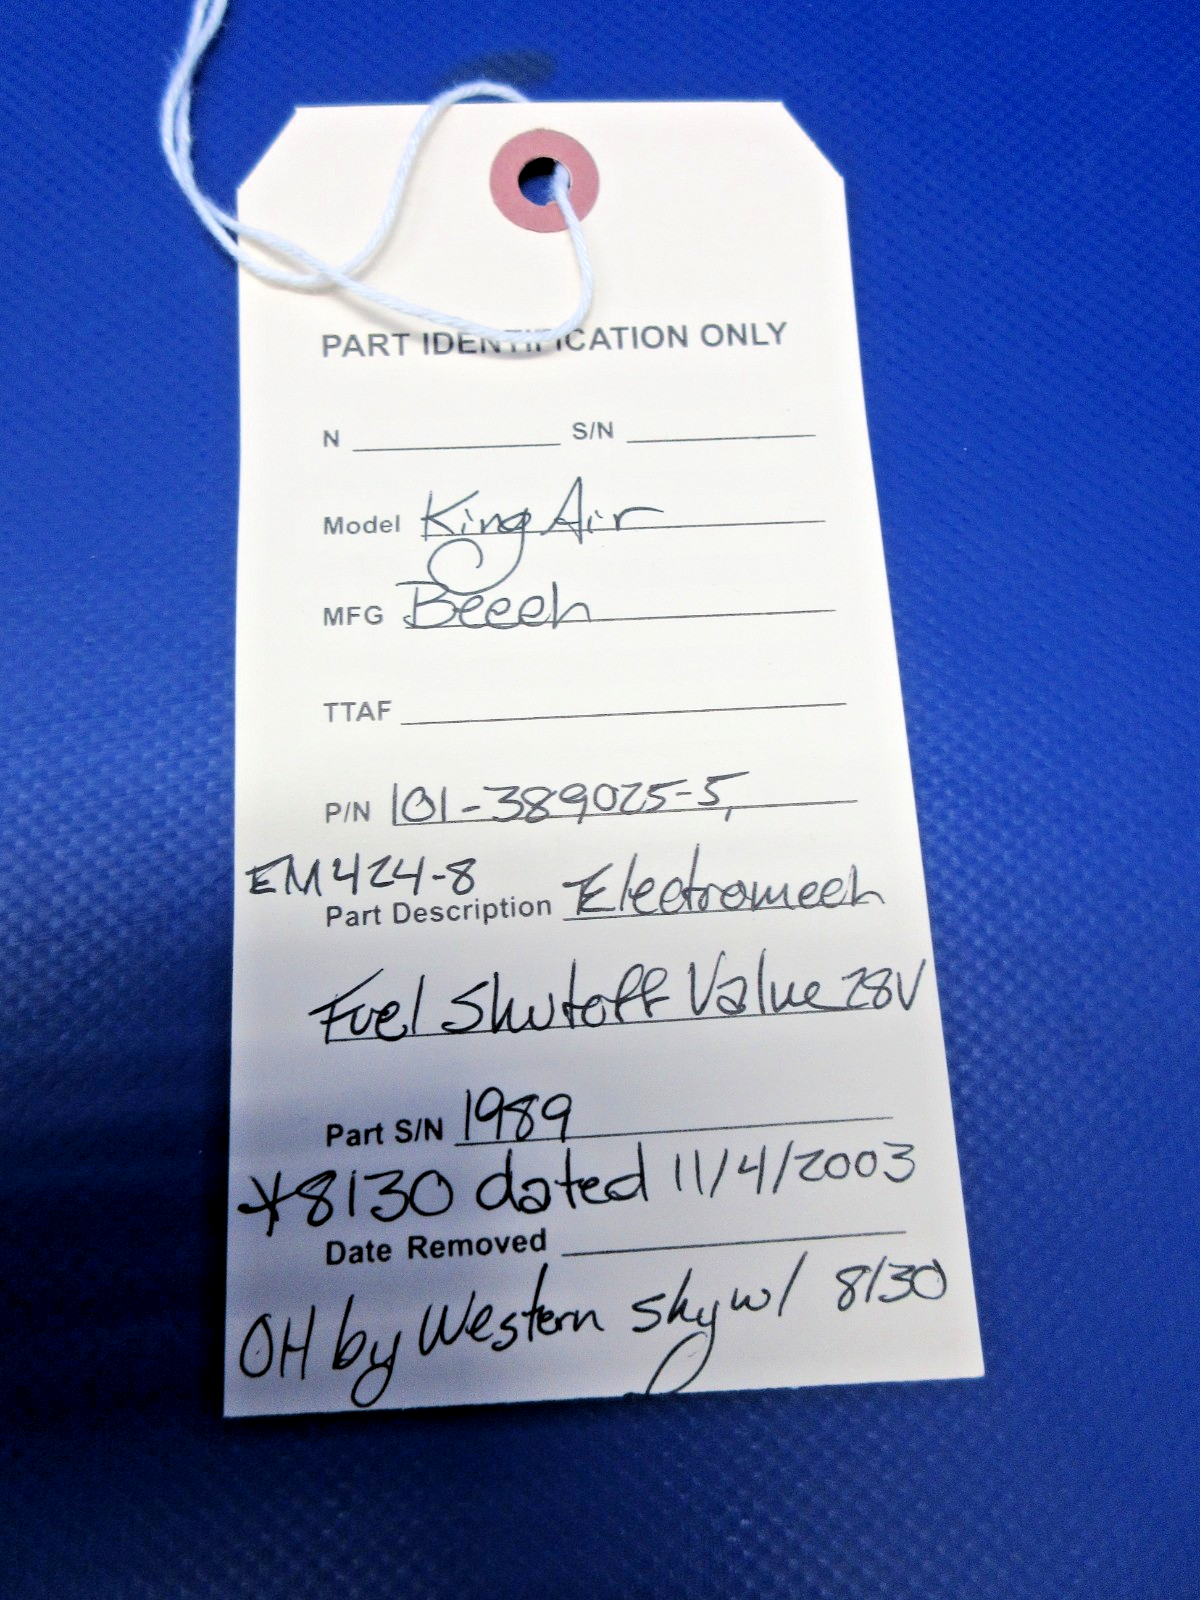 PART IDENTIFICATION ONLY
N S/N
Model King Air
MFG Beech
TTAF
P/N 101-389025-5,
EM424-8
Part Description Electromech
Fuel Shutoff Valve 28V
Part S/N 1989
*8130 dated 11/4/2003
Date Removed
OH by Western Sky w/ 8130